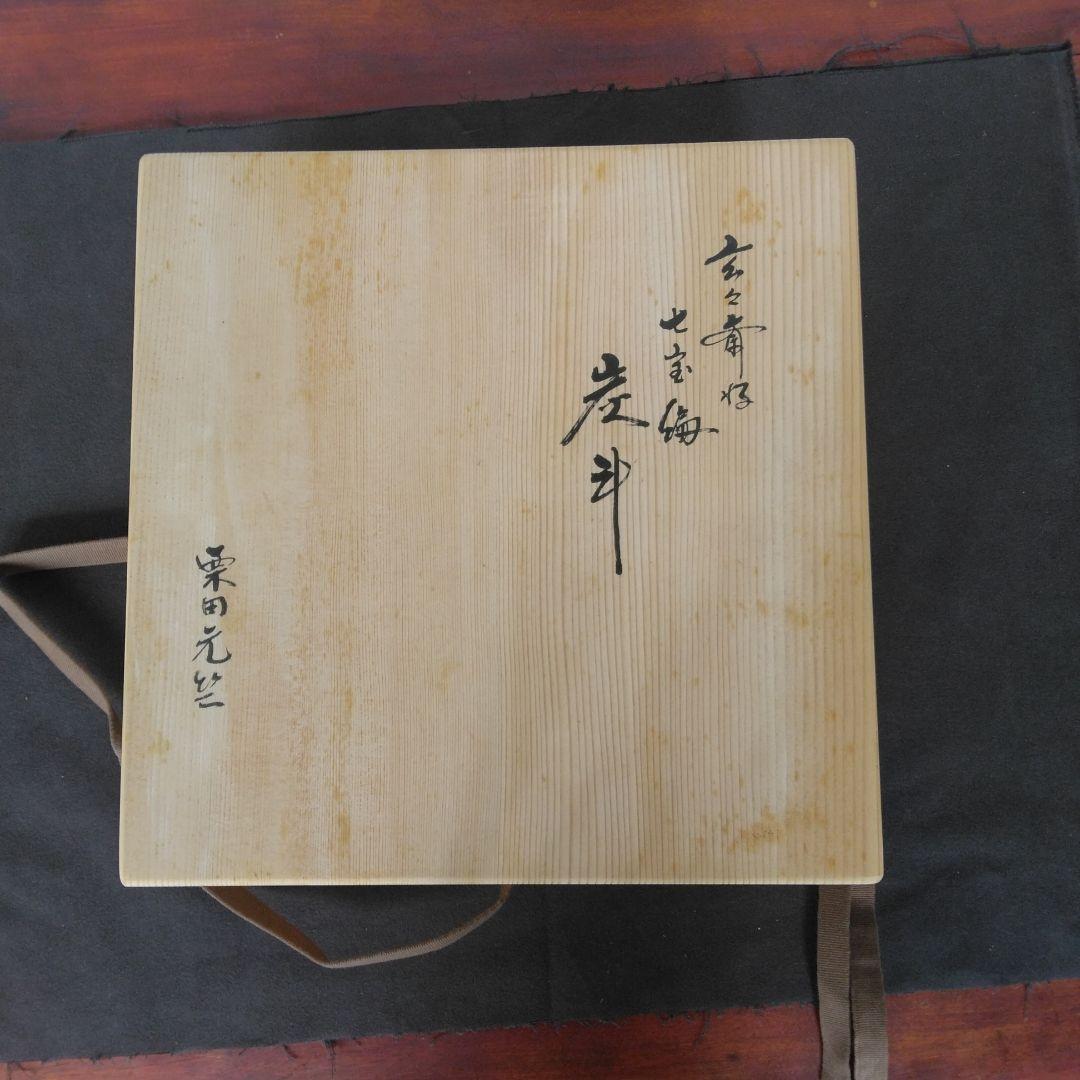 玄々斎好
七宝編
炭斗
栗田元竺